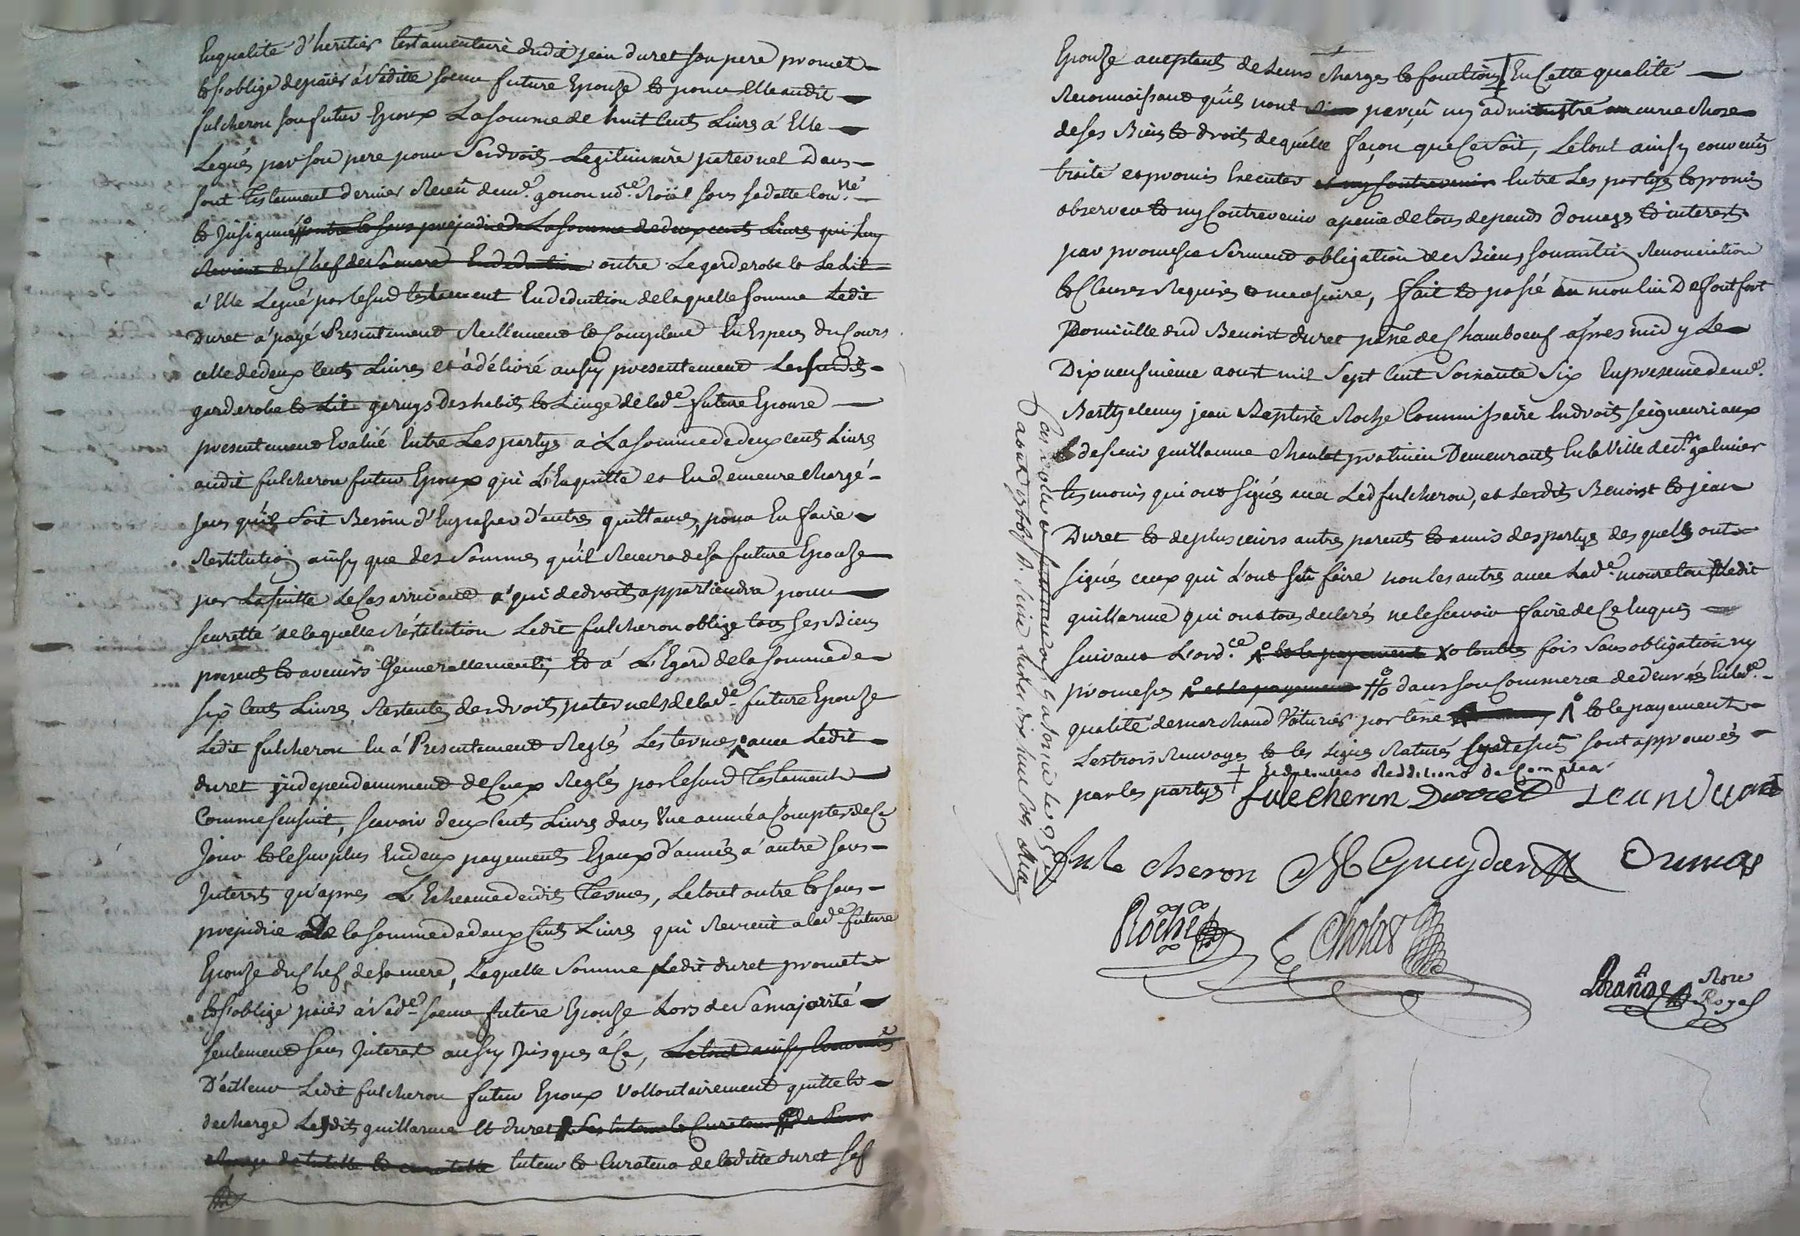 En qualité d'heritier testamentaire dudit jean duret son pere promet
et s'oblige de paier a Saditte soeur future Epouze et pour elle audit
fulcheron son futur Epoux La somme de huit cents Livres a Elle
Legués par son pere pour Ses droits Legitimaire paternel Dans
sont testament dernier Receu de me. gonon nore. Roial sous sa datte con.né
et Insigné et sans prejudice de La somme de deux cents Livres qui luy
Revient du Chef de Sa mere En deduction outre Le garderobe et Le Lit
a Elle Legué par le sud testament En deduction de laquelle somme Ledit
Duret a payé Presentement Reellement et Comptant En Especes du Cours
celle de deux Cents Livres et a délivré aussy presentement Lesusdit
garderobe et Lit garnys Des habits et Linge de lade. future Epouze
presentement Evalué Entre Les partys a La somme de deux cents Livres
audit fulcheron futur Epoux qui L'En quitte et En demeure chargé
sans qu'il Soit Besoin d'En passer d'autres quittances, pour En faire
Restitution ainsy que des Sommes qu'il Recevra de sa future Epouze
par La suitte Le Cas arrivant a qui de droit appartiendra pour
seureté de laquelle Restitution Ledit fulcheron oblige tous ses Biens
presents et avenirs Generallement, et a L'Egard de la somme de
six Cents Livres Restante des droits paternels de lade. future Epouze
Ledit fulcheron En a Presentement Reglés Les termes avec Ledit
duret independemment de Ceux Reglés par le sud Testament
Comme s'ensuit, scavoir deux Cents Livres dans Une année a Compter de Ce
Jour et le surplus En deux payements Egaux d'années a autre sans
Interets qu'apres L'Echeance desdits termes, Le tout outre et sans
prejudice de la somme de deux Cents Livres qui Revient a lade. future
Epouze du Chef de sa mere, Laquelle Somme Ledit duret promet
et s'oblige paier a Sade. soeur future Epouze Lors de Sa majorité
seulement sans Interest aussy Jusques a Ce, Le tout ainsy Convenus
D'ailleur Ledit fulcheron futur Epoux Vollontairement quitte et
decharge Lesdits guillarme et duret Ses tuteur et Curateur
charge de tutelle et curatelle tuteur et Curateur de laditte duret sa f
Epouze acceptants de Leurs charges et fonctions En Cette qualité
Reconnaissant qu'ils n'ont Rien perçu ny administré aucune chose
de ses Biens et droit de quelle façon que Ce soit, Le tout ainsy convenus
traité et promis Executer et ny Contrevenir Entre Les partys et promis
observer et ny Contrevenir a peine de tous depends domages et interets
par promesse Serment obligation de Biens soumition Renonciation
et Clauses Requises et necessaire, fait et passé au moulin De fontfort
Domicille dud Benoist duret psse de Chamboeuf apres midy Le
Dix neufvieme aoust mil Sept Cent Soixante Six En presence de me.
Barthelemy jean Baptiste Roche Commissaire En droits seigneuriaux
et de sieur guillaume Cholat praticien Demeurants En la Ville de St. galmier
temoins qui ont signés avec Led fulcheron, et lesdits Benoist et jean
Duret et de plusieurs autres parents et amis des partys des quells ont
signés ceux qui L'ont scu faire non les autres avec Lade. mourelon Ledit
guillarme qui ont tous declarés ne le scavoir faire de Ce Enquis
suivant L'ord.ce et le payement toutes fois Sans obligation ny
promesse et le payement dans son Commerce de denrés En lade.
qualité de marchand Voiturier par terre et le payement
Les trois Renvoyes et les Lignes Raturés Cy dessus sont approuvés
par les partys + Redditions de Comptes
fulcheron Durret Jean Duret
fulcheron Gueydan Dumas
Roche Cholat